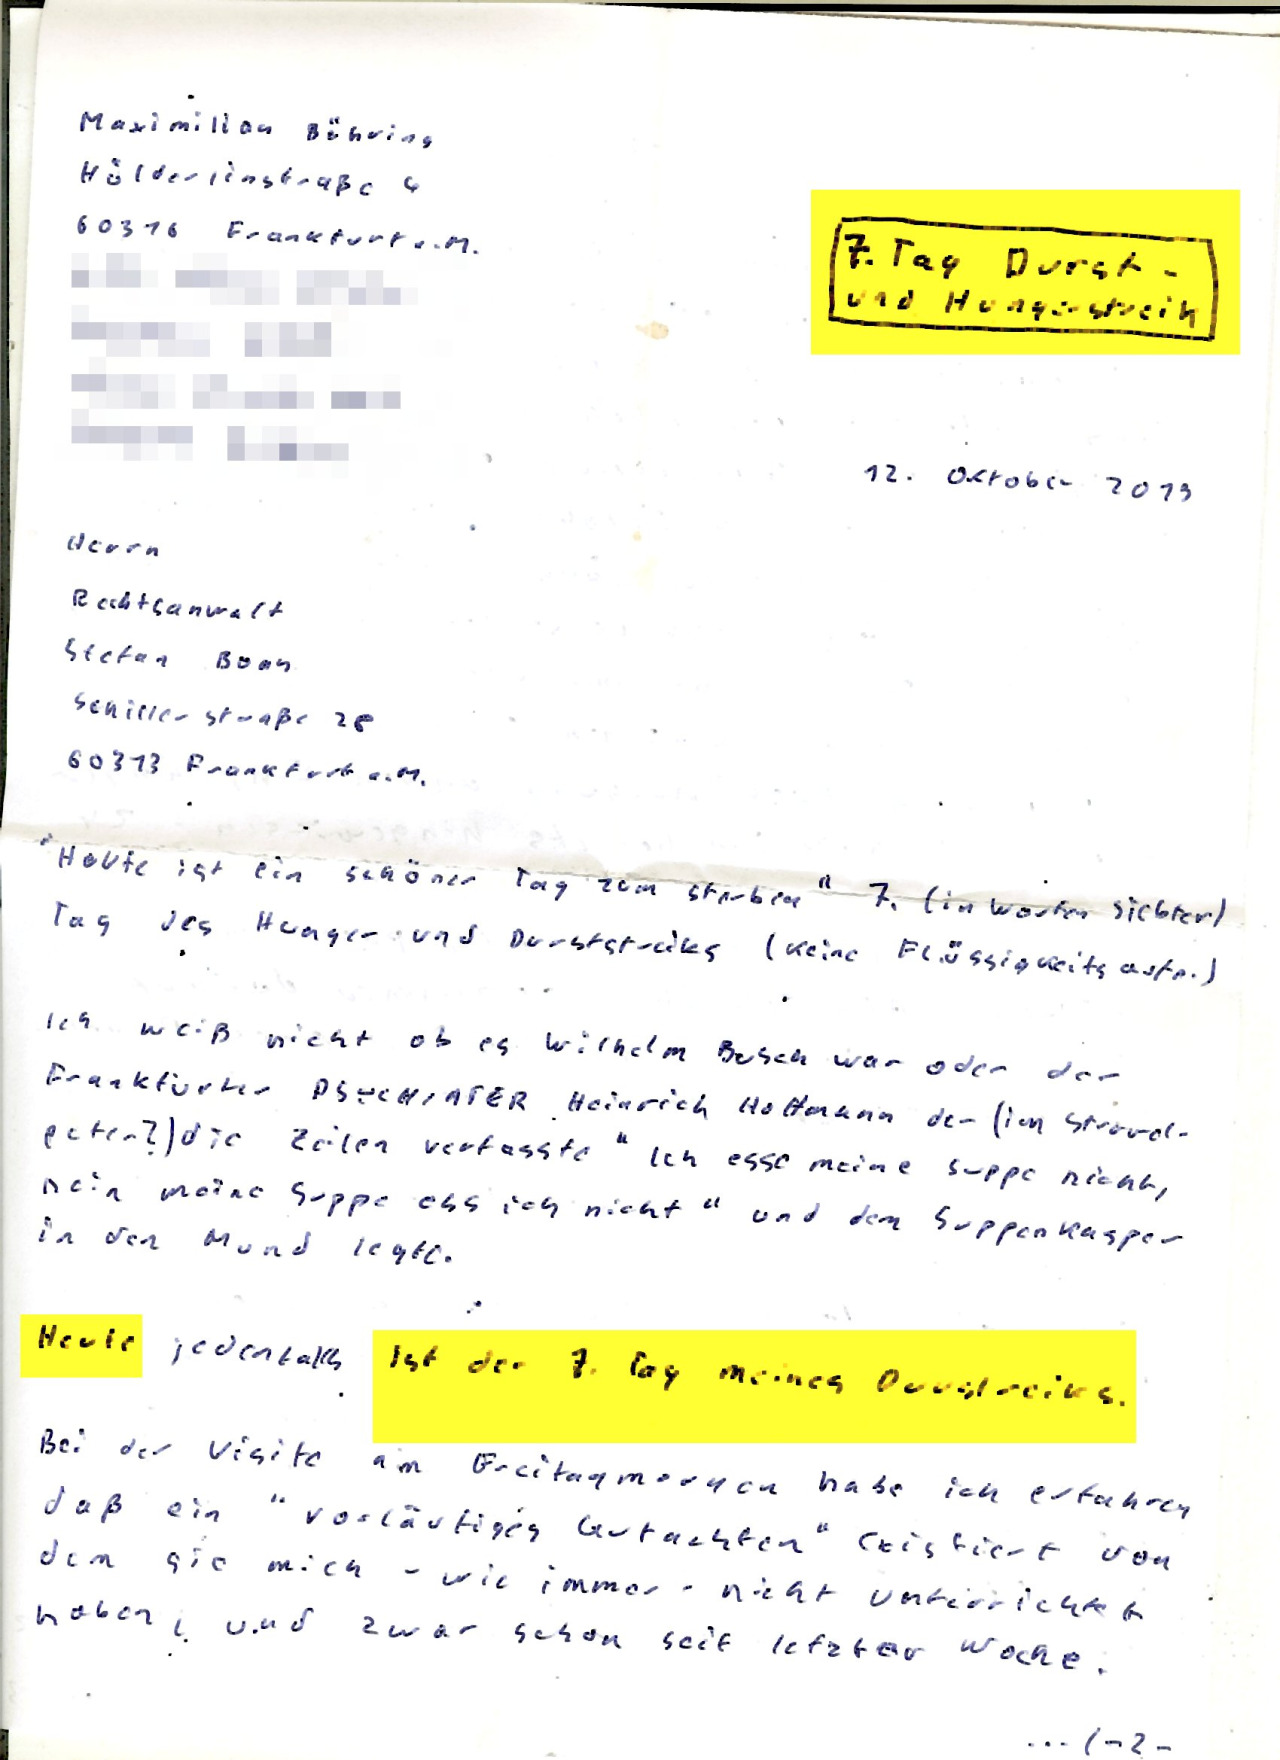 Maximilian Bähring
Hölderlinstraße 4
60316 Frankfurt a.M.
7. Tag Durst-
und Hungerstreik
12. Oktober 2013
Herrn
Rechtsanwalt
Stefan Bonn
Schillerstraße 28
60313 Frankfurt a.M.
"Heute ist ein schöner Tag zum sterben" 7. (in Worten siebter)
Tag des Hunger- und Durststreiks (keine Flüssigkeitsaufn.)
Ich weiß nicht ob es Wilhelm Busch war oder der
Frankfurter PSYCHIATER Heinrich Hoffmann der (im Struwel-
peter?) die Zeilen verfasste "Ich esse meine Suppe nicht,
nein meine Suppe ess ich nicht" und dem Suppenkasper
in den Mund legte.
Heute jedenfalls ist der 7. Tag meines Durstreiks.
Bei der Visite am Freitagmorgen habe ich erfahren
daß ein "vorläufiges Gutachten" existiert von
dem sie mich - wie immer - nicht unterrichtet
haben, und zwar schon seit letzter Woche.
... (-2-